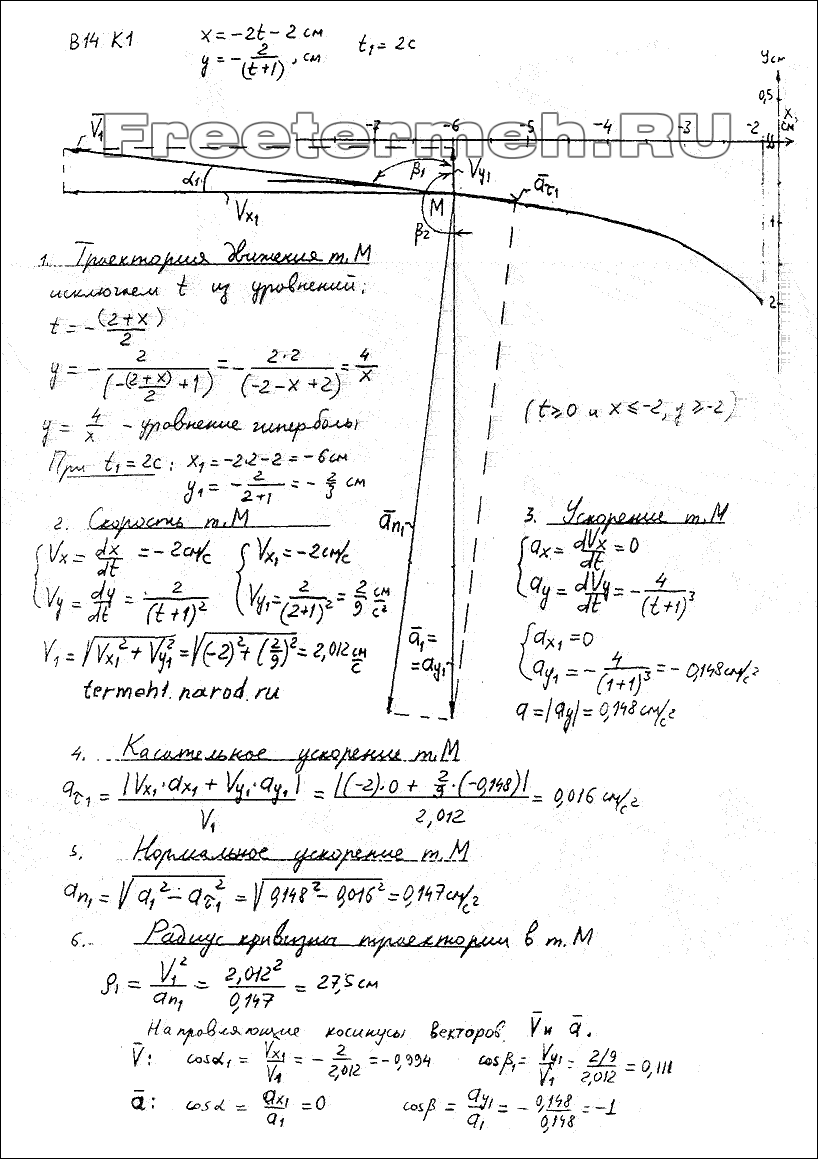 В14 К1 x = -2t - 2 см t₁ = 2с
y = - 2/(t+1), см
Y см
0,5
X, см
-7 -6 -5 -4 -3 -2
Freetermeh.RU
V̄₁ α₁ Vx₁ β₁ Vy₁ āτ₁ M β₂
1
2
1. Траектория движения т. М
исключаем t из уравнений:
t = - (2+x)/2
y = - 2/(-(2+x)/2 + 1) = - 2·2/(-2-x+2) = 4/x
y = 4/x - уравнение гиперболы
(t ≥ 0 и x ≤ -2, y ≥ -2)
При t₁ = 2с: x₁ = -2·2-2 = -6 см
y₁ = - 2/(2+1) = - 2/3 см
ān₁
ā₁ = = ay₁
2. Скорость т. М
Vx = dx/dt = -2 см/с Vx₁ = -2 см/с
Vy = dy/dt = 2/(t+1)² Vy₁ = 2/(2+1)² = 2/9 см/с²
V₁ = √(Vx₁² + Vy₁²) = √((-2)² + (2/9)²) = 2,012 см/с
termeh1.narod.ru
3. Ускорение т. М
ax = dVx/dt = 0
ay = dVy/dt = - 4/(t+1)³
ax₁ = 0
ay₁ = - 4/(1+1)³ = -0,148 см/с²
a = |ay| = 0,148 см/с²
4. Касательное ускорение т. М
aτ₁ = |Vx₁·ax₁ + Vy₁·ay₁|/V₁ = |(-2)·0 + 2/9·(-0,148)|/2,012 = 0,016 см/с²
5. Нормальное ускорение т. М
an₁ = √(a₁² - aτ₁²) = √(0,148² - 0,016²) = 0,147 см/с²
6. Радиус кривизны траектории в т. М
ρ₁ = V₁²/an₁ = 2,012²/0,147 = 27,5 см
Направляющие косинусы векторов V̄ и ā.
V̄: cosα₁ = Vx₁/V₁ = - 2/2,012 = -0,994 cosβ₁ = Vy₁/V₁ = (2/9)/2,012 = 0,111
ā: cosα = ax₁/a₁ = 0 cosβ = ay₁/a₁ = - 0,148/0,148 = -1